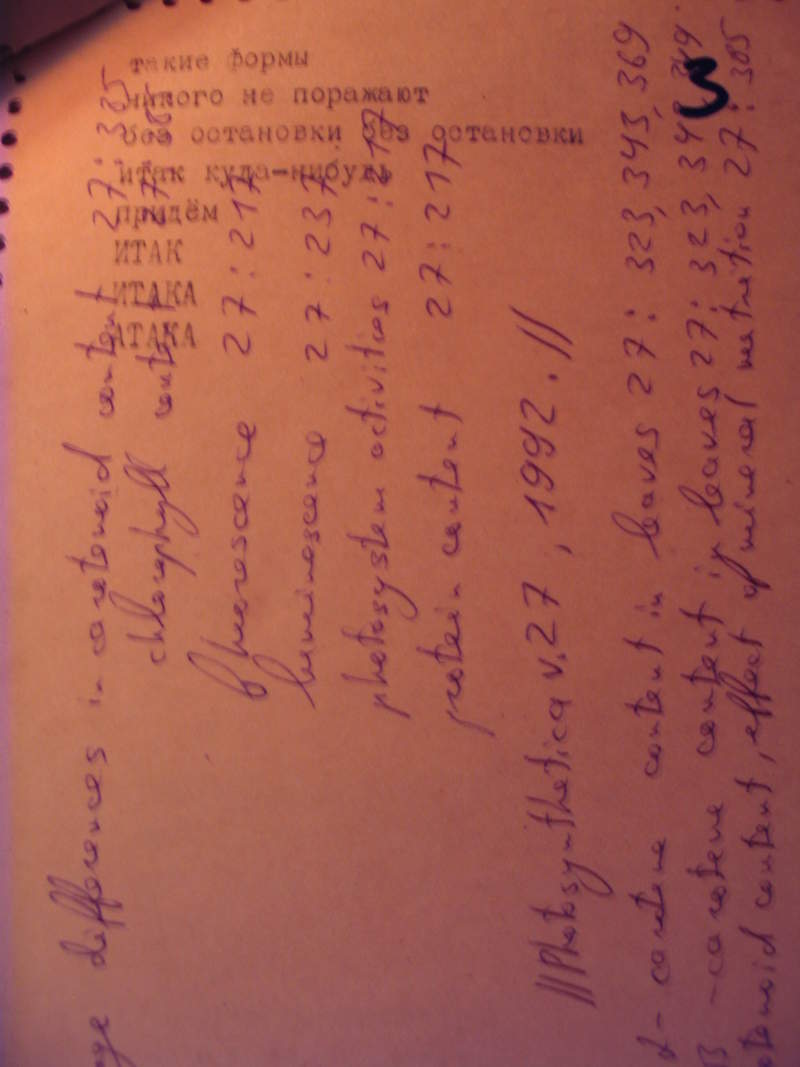 такие формы
никого не поражают
без остановки без остановки
итак куда-нибудь
придём
ИТАК
ИТАКА
АТАКА
differences in carotenoid content 27: 335
chlorophyll content 27:
fluorescence 27: 217
luminescence 27: 237
photosystem activities 27: 217
protein content 27: 217
//Photosynthetica v.27, 1992.//
α- carotene content in leaves 27: 323, 343, 369
β - carotene content in leaves 27: 323, 343, 349
content, effect of mineral nutrition 27: 385
3